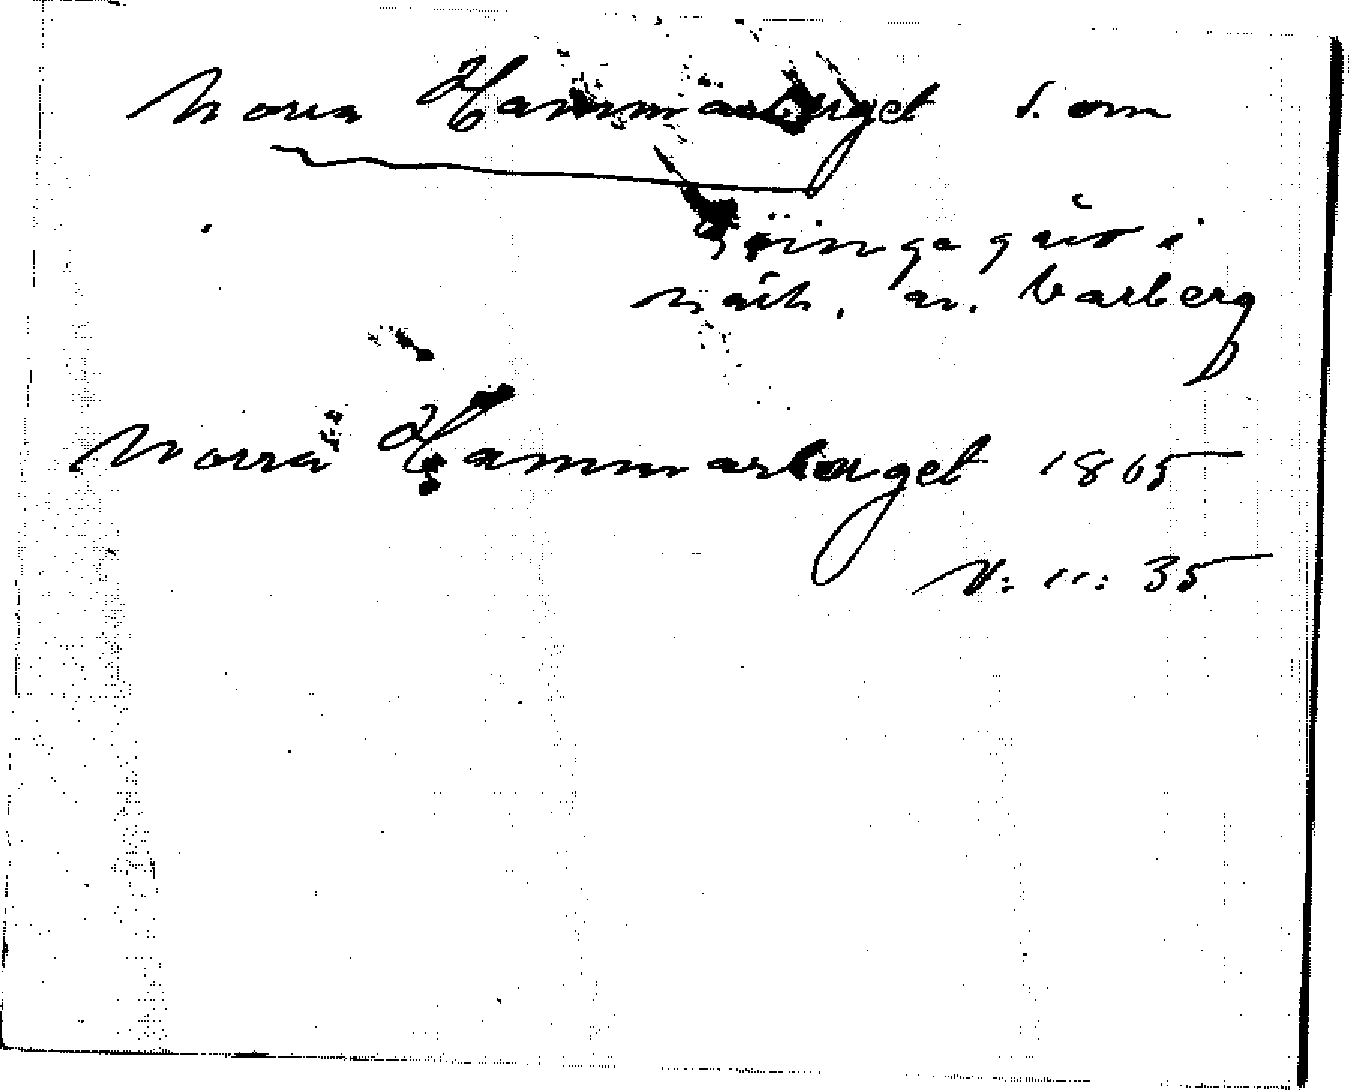 Norra Hammarberget S. om
gård i
närh. av. Varberg
Norra Hammarberget 1865
V: 11: 35